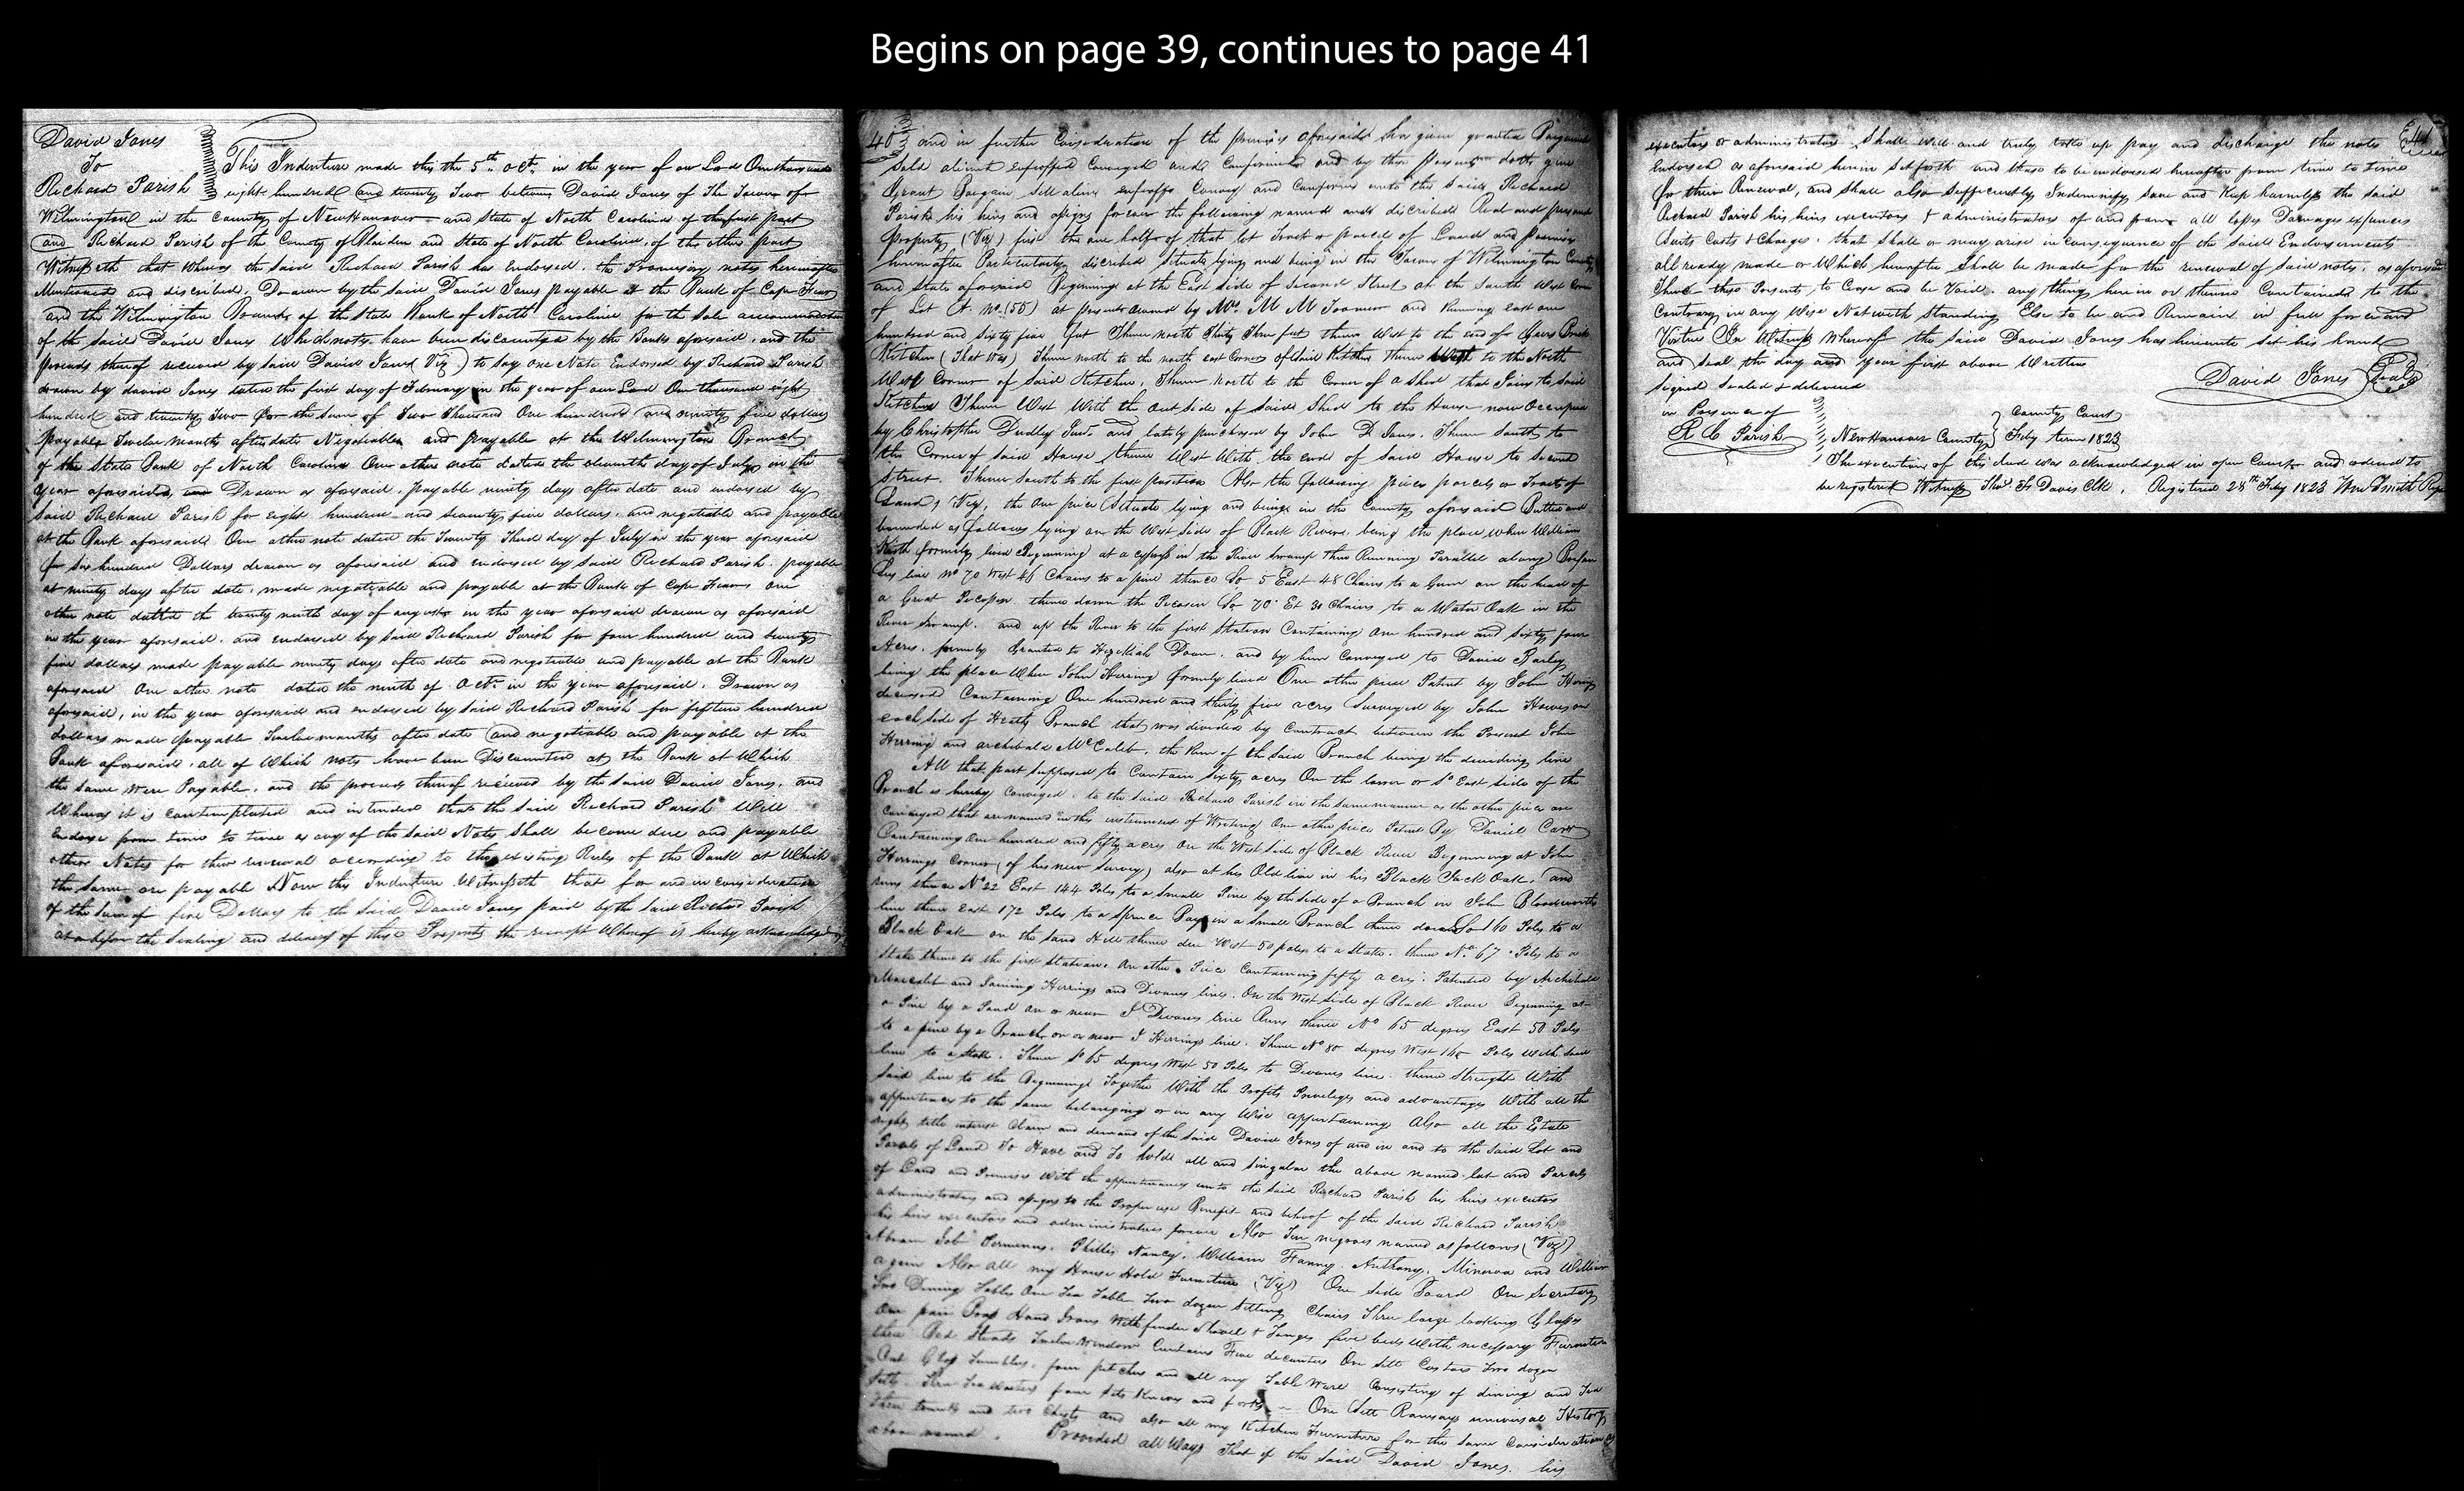 Begins on page 39, continues to page 41
David Jones
To
Richard Parish
This Indenture made this the 5th Oct. in the year of our Lord One thousand
eight hundred and twenty Two between David Jones of The Town of
Wilmington in the County of New Hanover and State of North Carolina of the first part
and Richard Parish of the County of Bladen and State of North Carolina, of the other part
Witnesseth that Whereas the said Richard Parish has Endorsed, the Promissory notes hereinafter
Mentioned and discribed, Drawn by the said David Jones payable at the Bank of Cape Fear
and the Wilmington Branch of the State Bank of North Carolina for the Sole accommodation
of the said David Jones Which notes have been discounted by the Banks aforesaid, and the
proceeds thereof received by said David Jones Viz) to say one Note Endorsed by Richard Parish
drawn by david Jones dated the first day of February in the year of our Lord One thousand eight
hundred and twenty Two for the sum of Two Thousand One hundred and seventy five dollars
payable Twelve months after date Negotiable and payable at the Wilmington Branch
of the State Bank of North Carolina One other note dated the eleventh day of July in the
year aforesaid, Drawn as aforesaid, payable ninety days after date and endorsed by
said Richard Parish for eight hundred and seventy five dollars, and negotiable and payable
at the Bank aforesaid One other note dated the Twenty Third day of July in the year aforesaid
for six hundred Dollars drawn as aforesaid and endorsed by said Richard Parish, payable
at ninety days after date, made negotiable and payable at the Bank of Cape Fear One
other note dated the twenty ninth day of august in the year aforesaid drawn as aforesaid
in the year aforesaid, and endorsed by said Richard Parish for four hundred and seventy
five dollars made payable ninety days after date and negotiable and payable at the Bank
aforesaid One other note dated the ninth of Oct. in the year aforesaid, Drawn as
aforesaid, in the year aforesaid and endorsed by said Richard Parish for fifteen hundred
dollars made payable Twelve months after date and negotiable and payable at the
Bank aforesaid, all of Which notes have been Discounted at the Bank at Which
the same were Payable, and the proceeds thereof received by the said David Jones, and
Whereas it is contemplated and intended that the said Richard Parish Will
Endorse from time to time as any of the said Notes Shall become due and payable
other Notes for their renewal according to the existing Rules of the Bank at Which
the same are payable Now this Indenture Witnesseth that for and in consideration
of the sum of five Dollars to the said David Jones paid by the said Richard Parish
at or before the Sealing and delivery of these Presents the receipt Whereof is hereby acknowledged
40 and in further Consideration of the premises aforesaid has given granted Bargained
Sold aliened enfeoffed Conveyed and Confirmed and by these Presents doth give
Grant Bargain, Sell alien enfeoff Convey and Confirm unto the said Richard
Parish his heirs and assigns forever the following named and discribed Real and personal
property (Viz) first the one half of that lot Tract or parcel of Land and Premises
hereinafter Particularly discribed Situate lying and being in the Town of Wilmington County
and State aforesaid Beginning at the East side of Second Street at the South West Corner
of Lot No. (155) at present owned by Mrs. M M Toomer and Running east one
hundred and Sixty five feet Thence north thirty Three feet thence West to the end of Brick
Kitchen (That Was) Thence north to the north east Corner of Said Kitchen Thence West to the North
West Corner of Said Kitchen, Thence North to the Corner of a Shed that Joins the said
Kitchen Thence West With the out Side of Said Shed to the House now Occupied
by Christopher Dudley Junr. and lately purchased by John D Jones. Thence South to
the Corner of said House, thence West With the end of said House to Second
Street. Thence South to the first station Also the following pieces parcels or Tracts of
Land, Viz, the one piece Situate lying and being in the County aforesaid Butted and
bounded as follows lying on the West Side of Black River, being the place where William
formerly lived Beginning at a cypress in the River swamp Thence Running Parallel along
line No 70 West 46 Chains to a pine thence So 5 East 48 Chains to a Gum on the head of
a Great Pocoson thence down the Pocoson So 70 Et 30 Chains to a Water Oak in the
River swamp, and up the River to the first Station Containing One hundred and Sixty four
Acres, formerly Granted to Hezekiah Doane, and by him Conveyed to David Bailey
being the place Where John Herring formerly lived One other piece Patent by John Herring
deceased Containing One hundred and thirty five acres Surveyed by John Howes on
each side of Heath Branch that was divided by Contract between the Present John
Herring and archibald McCaleb, the Run of the said Branch being the dividing line
All that part supposed to Contain Sixty acres On the lower or So East side of the
Branch is hereby Conveyed to the said Richard Parish in the same manner as the other pieces are
conveyed that are named in this instrument of Writing One other piece Patent By Daniel Carr
Containing One hundred and fifty acres On the West Side of Black River Beginning at John
Herrings Corner (of his new Survey) also at his Old line in his Black Jack Oak, and
runs thence No 22 East 144 Poles to a Small Pine by the side of a Branch in John Bloodworths
line thence East 172 Poles to a Spruce Bay in a Small Branch thence down So 160 Poles to a
Black Oak on the Sand Hill thence due West 50 poles to a Stake, thence No. 67 Poles to a
Stake thence to the first Station. Another Piece Containing fifty acres, Patented by Archibald
and Joining Herrings and Devanes lines. On the West Side of Black River Beginning at
a Pine by a Pond on or near J Devanes line Runs thence No 65 degrees East 50 Poles
to a pine by a Branch, on or near J Herrings line. Thence No 80 degrees West 160 Poles With said
line to a Stake. Thence So 65 degrees West 50 Poles to Devanes line, thence Straight With
said line to the Beginning Together With the Profits Priveleges and advantages With all the
appurtenances to the same belonging or in any Wise appertaining Also all the Estate
right title interest Claim and demand of the said David Jones of and in and to the said Lot and
Parcels of Land To Have and To holde all and Singular the above named lot and Parcels
of Land and Premises With the appurtenances unto the said Richard Parish his heirs executors
administrators and assigns to the Proper use Benefit and behoof of the said Richard Parish
his heirs executors and administrators forever Also Ten negroes named as follows (Viz)
Abram Job Phillis Nancy, William Fanny, Anthony, Minerva and William
again Also all my House Hold Furniture (Viz) One Side Board One Secretary
Two Dining Tables One Tea Table Two dozen Sitting Chairs Three large looking Glasses
One pair Brass Hand Irons With fender Shovel & Tongs five beds With necessary Furniture
three Bed Steads Twelve Window Curtains Five decanters One Sett Castors Two dozen
Cut Glass Tumblers, four pitchers and all my Table Ware Consisting of dining and Tea
Setts. Three Tea Waiters four sets Knives and forks – One Sett Ramsays universal History
Three trunks and two Chests and also all my Kitchen Furniture for the same Consideration as
above named. Provided all Ways That if the said David Jones, his
41
executors or administrators Shall Well and truly take up pay and discharge the notes
Endorsed as aforesaid herein Set forth and those to be endorsed hereafter from time to time
for their Renewal, and shall also sufficiently Indemnify save and Keep harmless the said
Richard Parish his heirs executors & administrators of and from all losses Damages expences
Suits Costs & Charges, that Shall or may arise in consequence of the said Endorsements
all ready made or Which hereafter Shall be made for the renewal of said notes, as aforesaid
Then these Presents to Cease and be Void, any thing herein or thereine Contained to the
Contrary in any Wise Notwith Standing Else to be and Remain in full force and
Virtue In Witness whereof the said David Jones has hereunto set his hand
and Seal the day and year first above Written
Signed Sealed & delivered
David Jones (Seal)
in Presence of
R C Parish
New Hanover County } County Court
Feby term 1823
The execution of this deed was acknowledged in open Court and ordered to
be registered Witness Thos. F. Davis Clk. Registered 28th Feby 1823 Wm Smith Regr